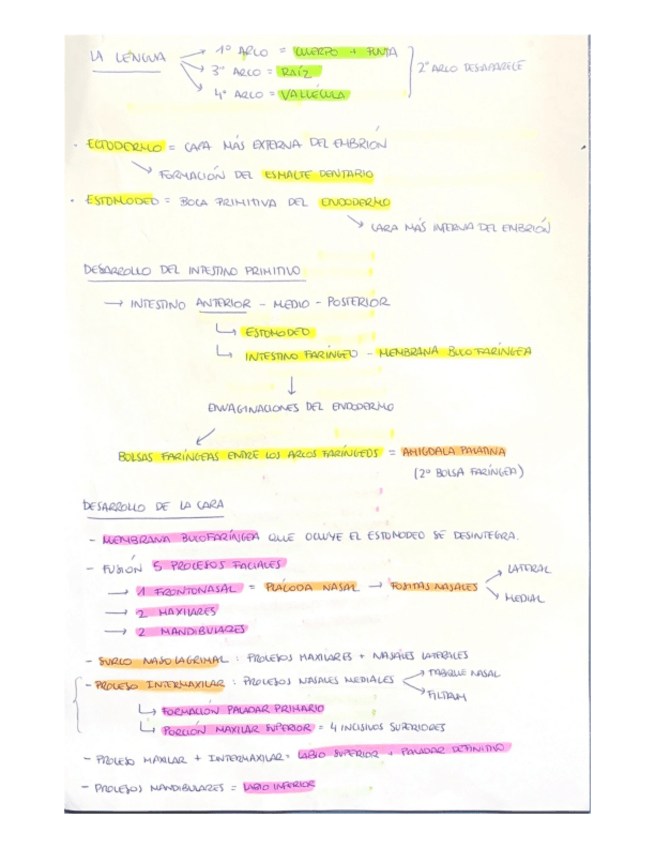 LA LENGUA
1º ARCO = CUERPO + PUNTA
3º ARCO = RAÍZ
4º ARCO = VALLÉCULA
2º ARCO DESAPARECE
· ECTODERMO = CAPA MÁS EXTERNA DEL EMBRIÓN
FORMACIÓN DEL ESMALTE DENTARIO
· ESTOMODEO = BOCA PRIMITIVA DEL ENDODERMO
CAPA MÁS INTERNA DEL EMBRIÓN
DESARROLLO DEL INTESTINO PRIMITIVO
→ INTESTINO ANTERIOR - MEDIO - POSTERIOR
↳ ESTOMODEO
↳ INTESTINO FARÍNGEO - MEMBRANA BUCOFARÍNGEA
↓
INVAGINACIONES DEL ENDODERMO
BOLSAS FARÍNGEAS ENTRE LOS ARCOS FARÍNGEOS = AMIGDALA PALATINA
(2º BOLSA FARÍNGEA)
DESARROLLO DE LA CARA
- MEMBRANA BUCOFARÍNGEA QUE OCLUYE EL ESTOMODEO SE DESINTEGRA.
- FUSIÓN 5 PROCESOS FACIALES
→ 1 FRONTONASAL = PLÁCODA NASAL → FOSITAS NASALES
LATERAL
MEDIAL
→ 2 MAXILARES
→ 2 MANDIBULARES
- SURCO NASOLAGRIMAL : PROCESOS MAXILARES + NASALES LATERALES
- PROCESO INTERMAXILAR : PROCESOS NASALES MEDIALES
TABIQUE NASAL
FILTRUM
↳ FORMACIÓN PALADAR PRIMARIO
↳ PORCIÓN MAXILAR SUPERIOR = 4 INCISIVOS SUPERIORES
- PROCESO MAXILAR + INTERMAXILAR = LABIO SUPERIOR + PALADAR DEFINITIVO
- PROCESOS MANDIBULARES = LABIO INFERIOR